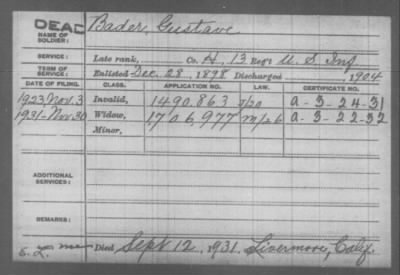 DEAD
NAME OF SOLDIER: Bader, Gustave
SERVICE: Late rank, Co. H, 13 Reg't U. S. Inf.
TERM OF SERVICE: Enlisted Dec. 28, 1898 Discharged , 1904
DATE OF FILING. CLASS. APPLICATION NO. LAW. CERTIFICATE NO.
1923 Nov. 3 Invalid, 1490.863 a-3-24-31
1931-Nov. 30 Widow, 1706,977 a-3-22-32
Minor,
ADDITIONAL SERVICES:
REMARKS:
Died Sept 12, 1931. Livermore, Calif.